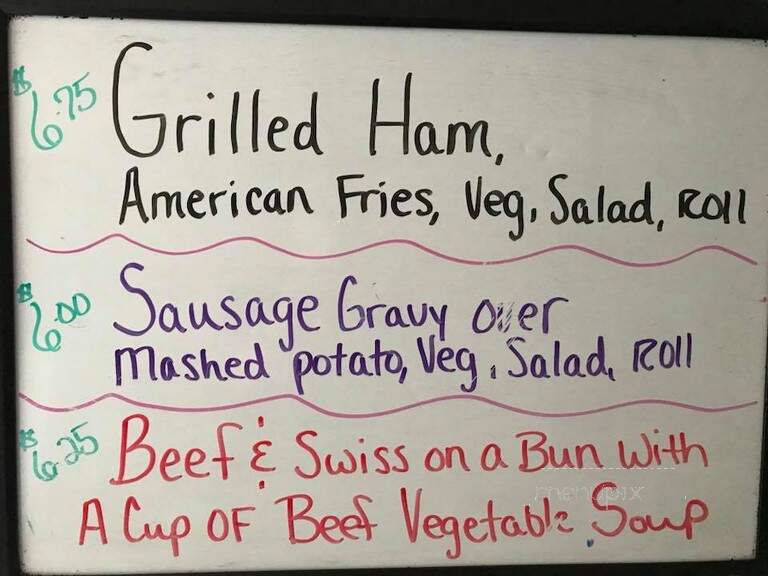 $6.75 Grilled Ham,
American Fries, Veg, Salad, Roll
$6.00 Sausage Gravy over
Mashed potato, Veg, Salad, Roll
$6.25 Beef & Swiss on a Bun With
A Cup OF Beef Vegetable Soup
menupix